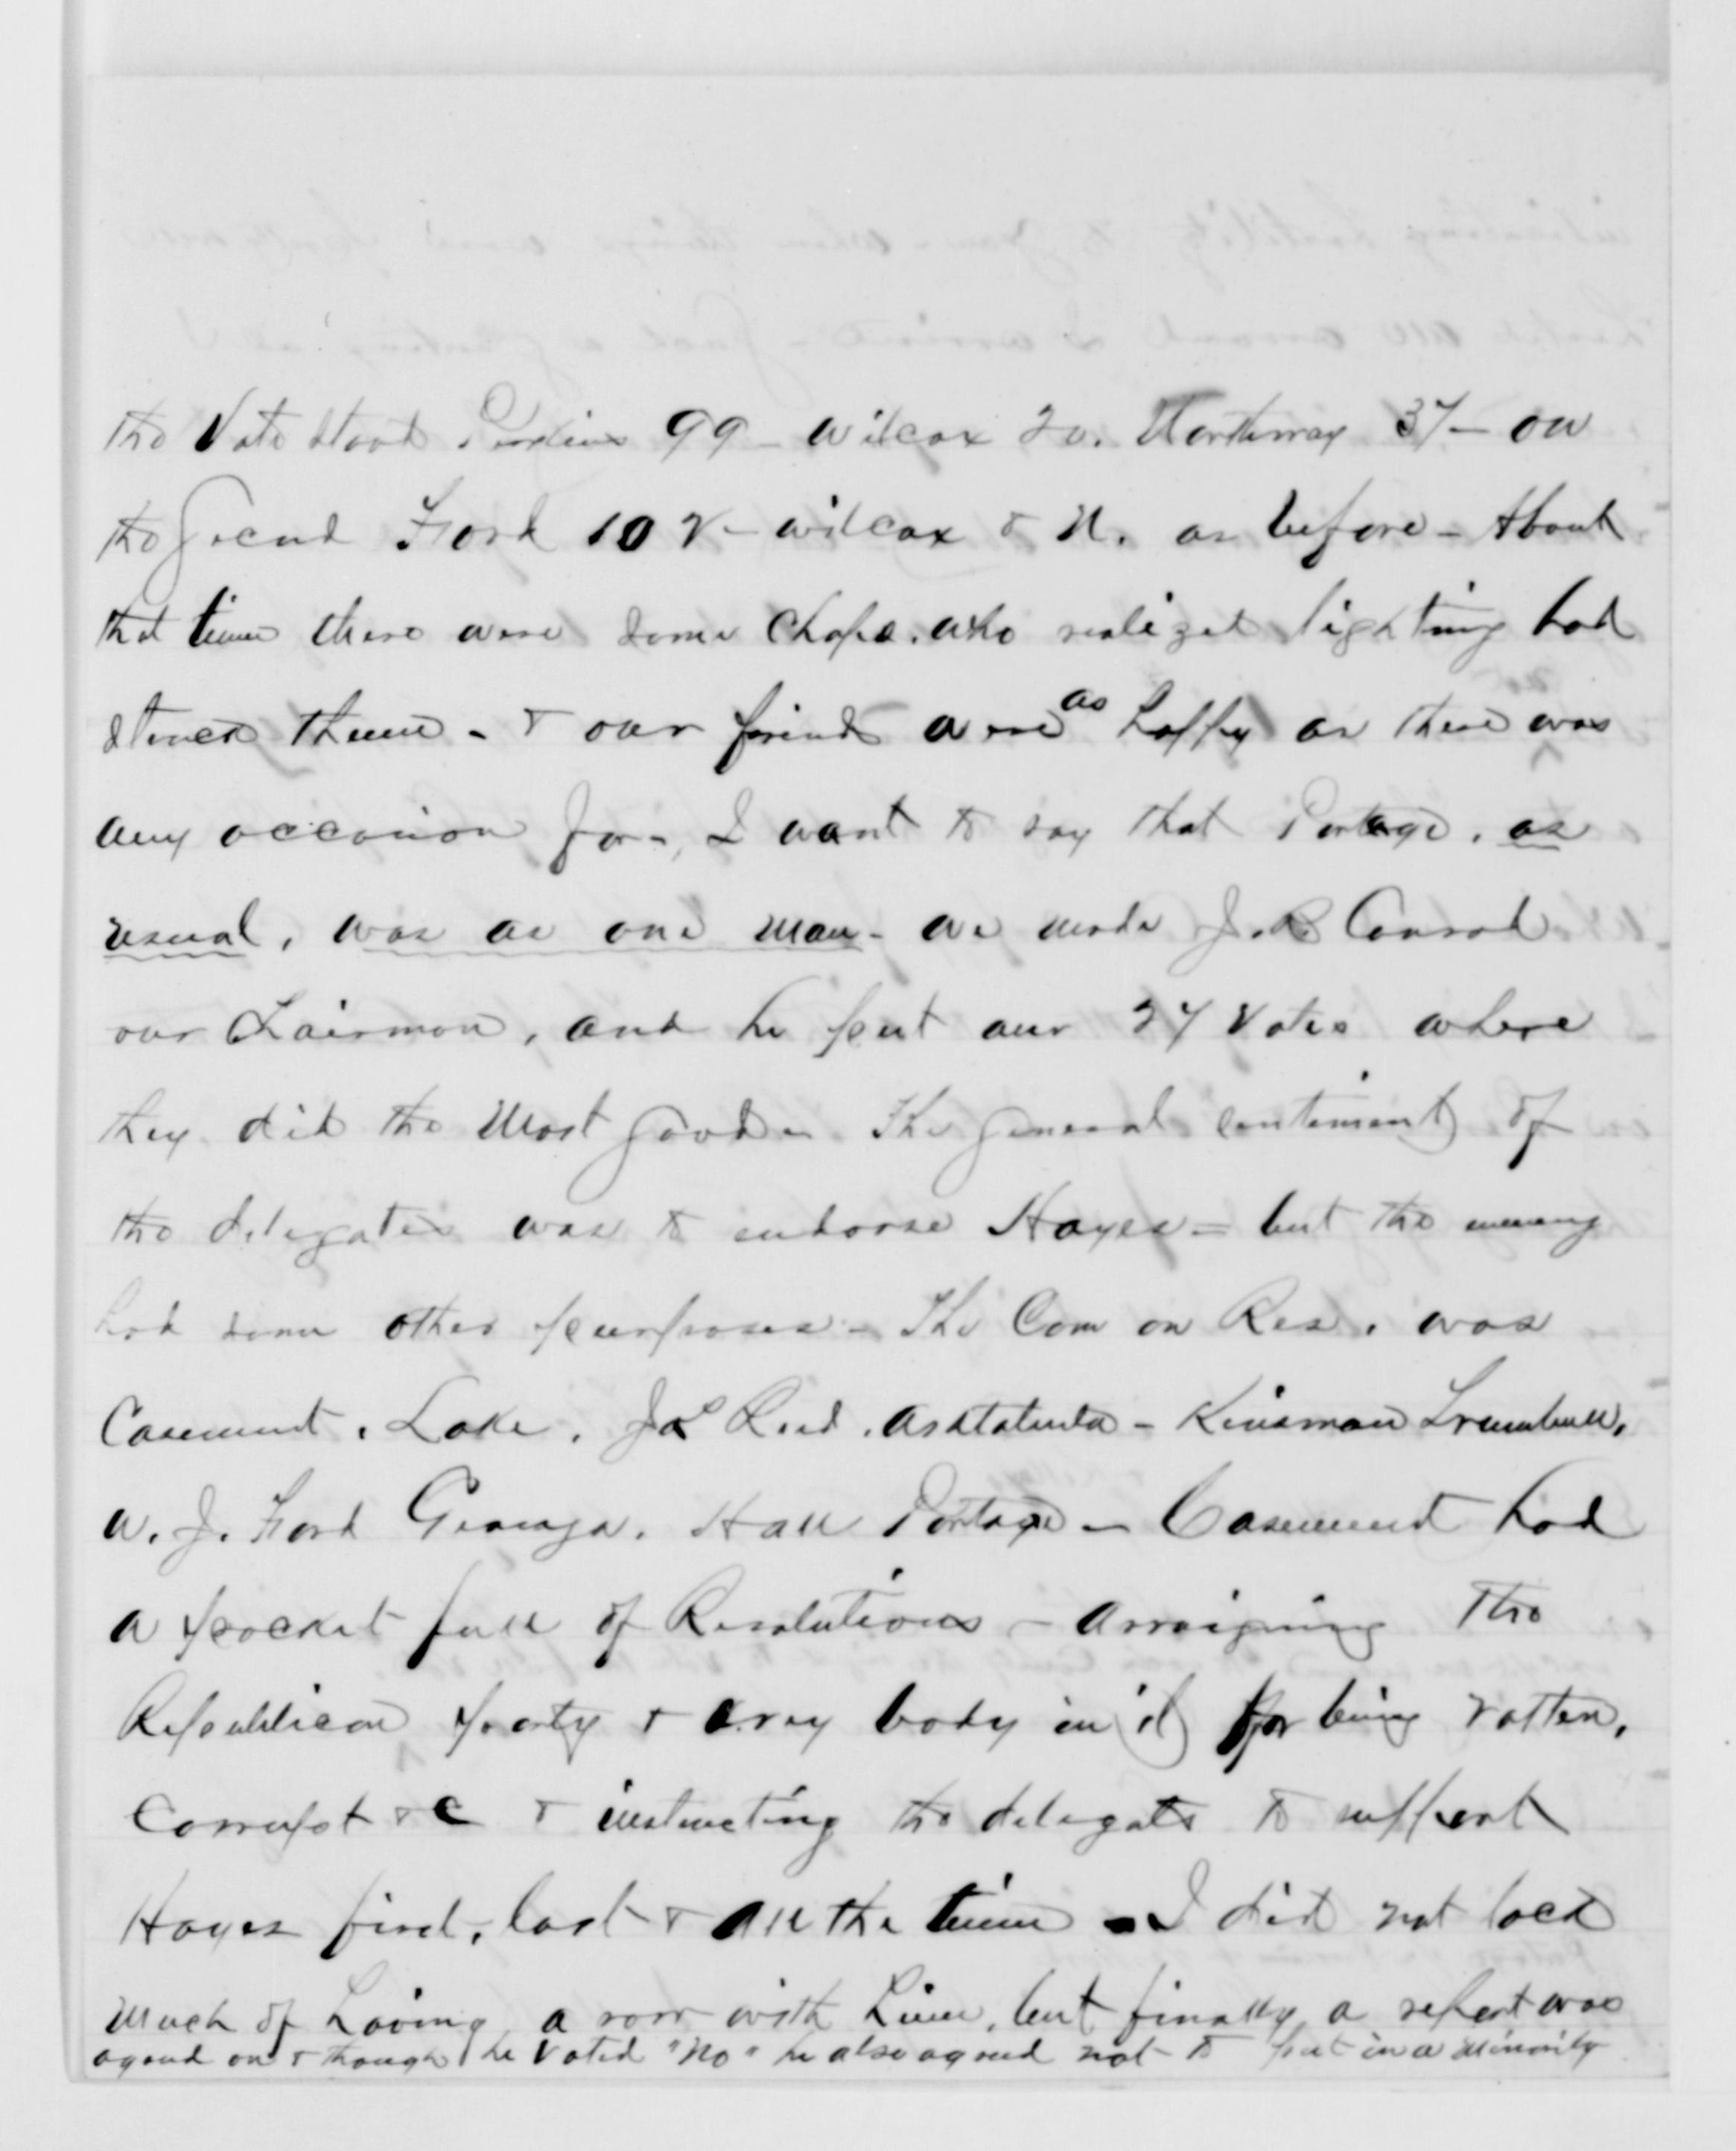 the Vote stood Perkins 99 - Wilcox 20. Northway 37 - on
the second Ford 102 - Wilcox & N. as before - About
that time there were some chaps. who realized lightning had
struck them - & our friends were as happy as there was
any occasion for -, I want to say that Portage, as
usual, was as one man - we made J. R. Conrad
our Chairman, and he put our 27 votes where
they did the most good - The general sentiment of
the delegates was to endorse Hayes - but the enemy
had some other purposes - The Com on Res. was
Casement, Lake. Reed. Ashtabula - Kinsman Trumbull,
W. J. Ford Geauga. Hall Portage - Casement had
a pocket full of Resolutions - arraigning the
Republican party & every body in it for being rotten,
corrupt &c & instructing the delegats to support
Hayes first, last & all the time - I did not lack
much of having a row with him, but finally a report was
agreed on & though he voted "No" he also agreed not to put in a minority